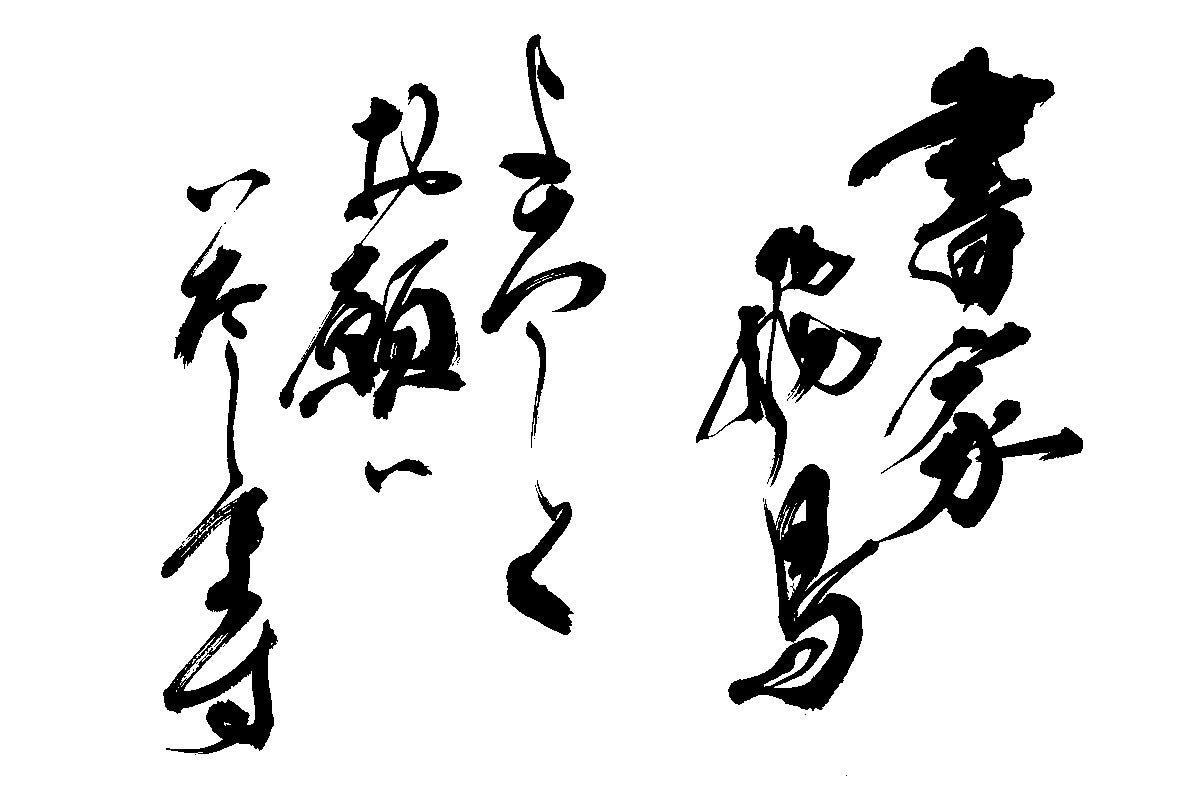 書家
揚鳥
よろしく
お願い
いたします